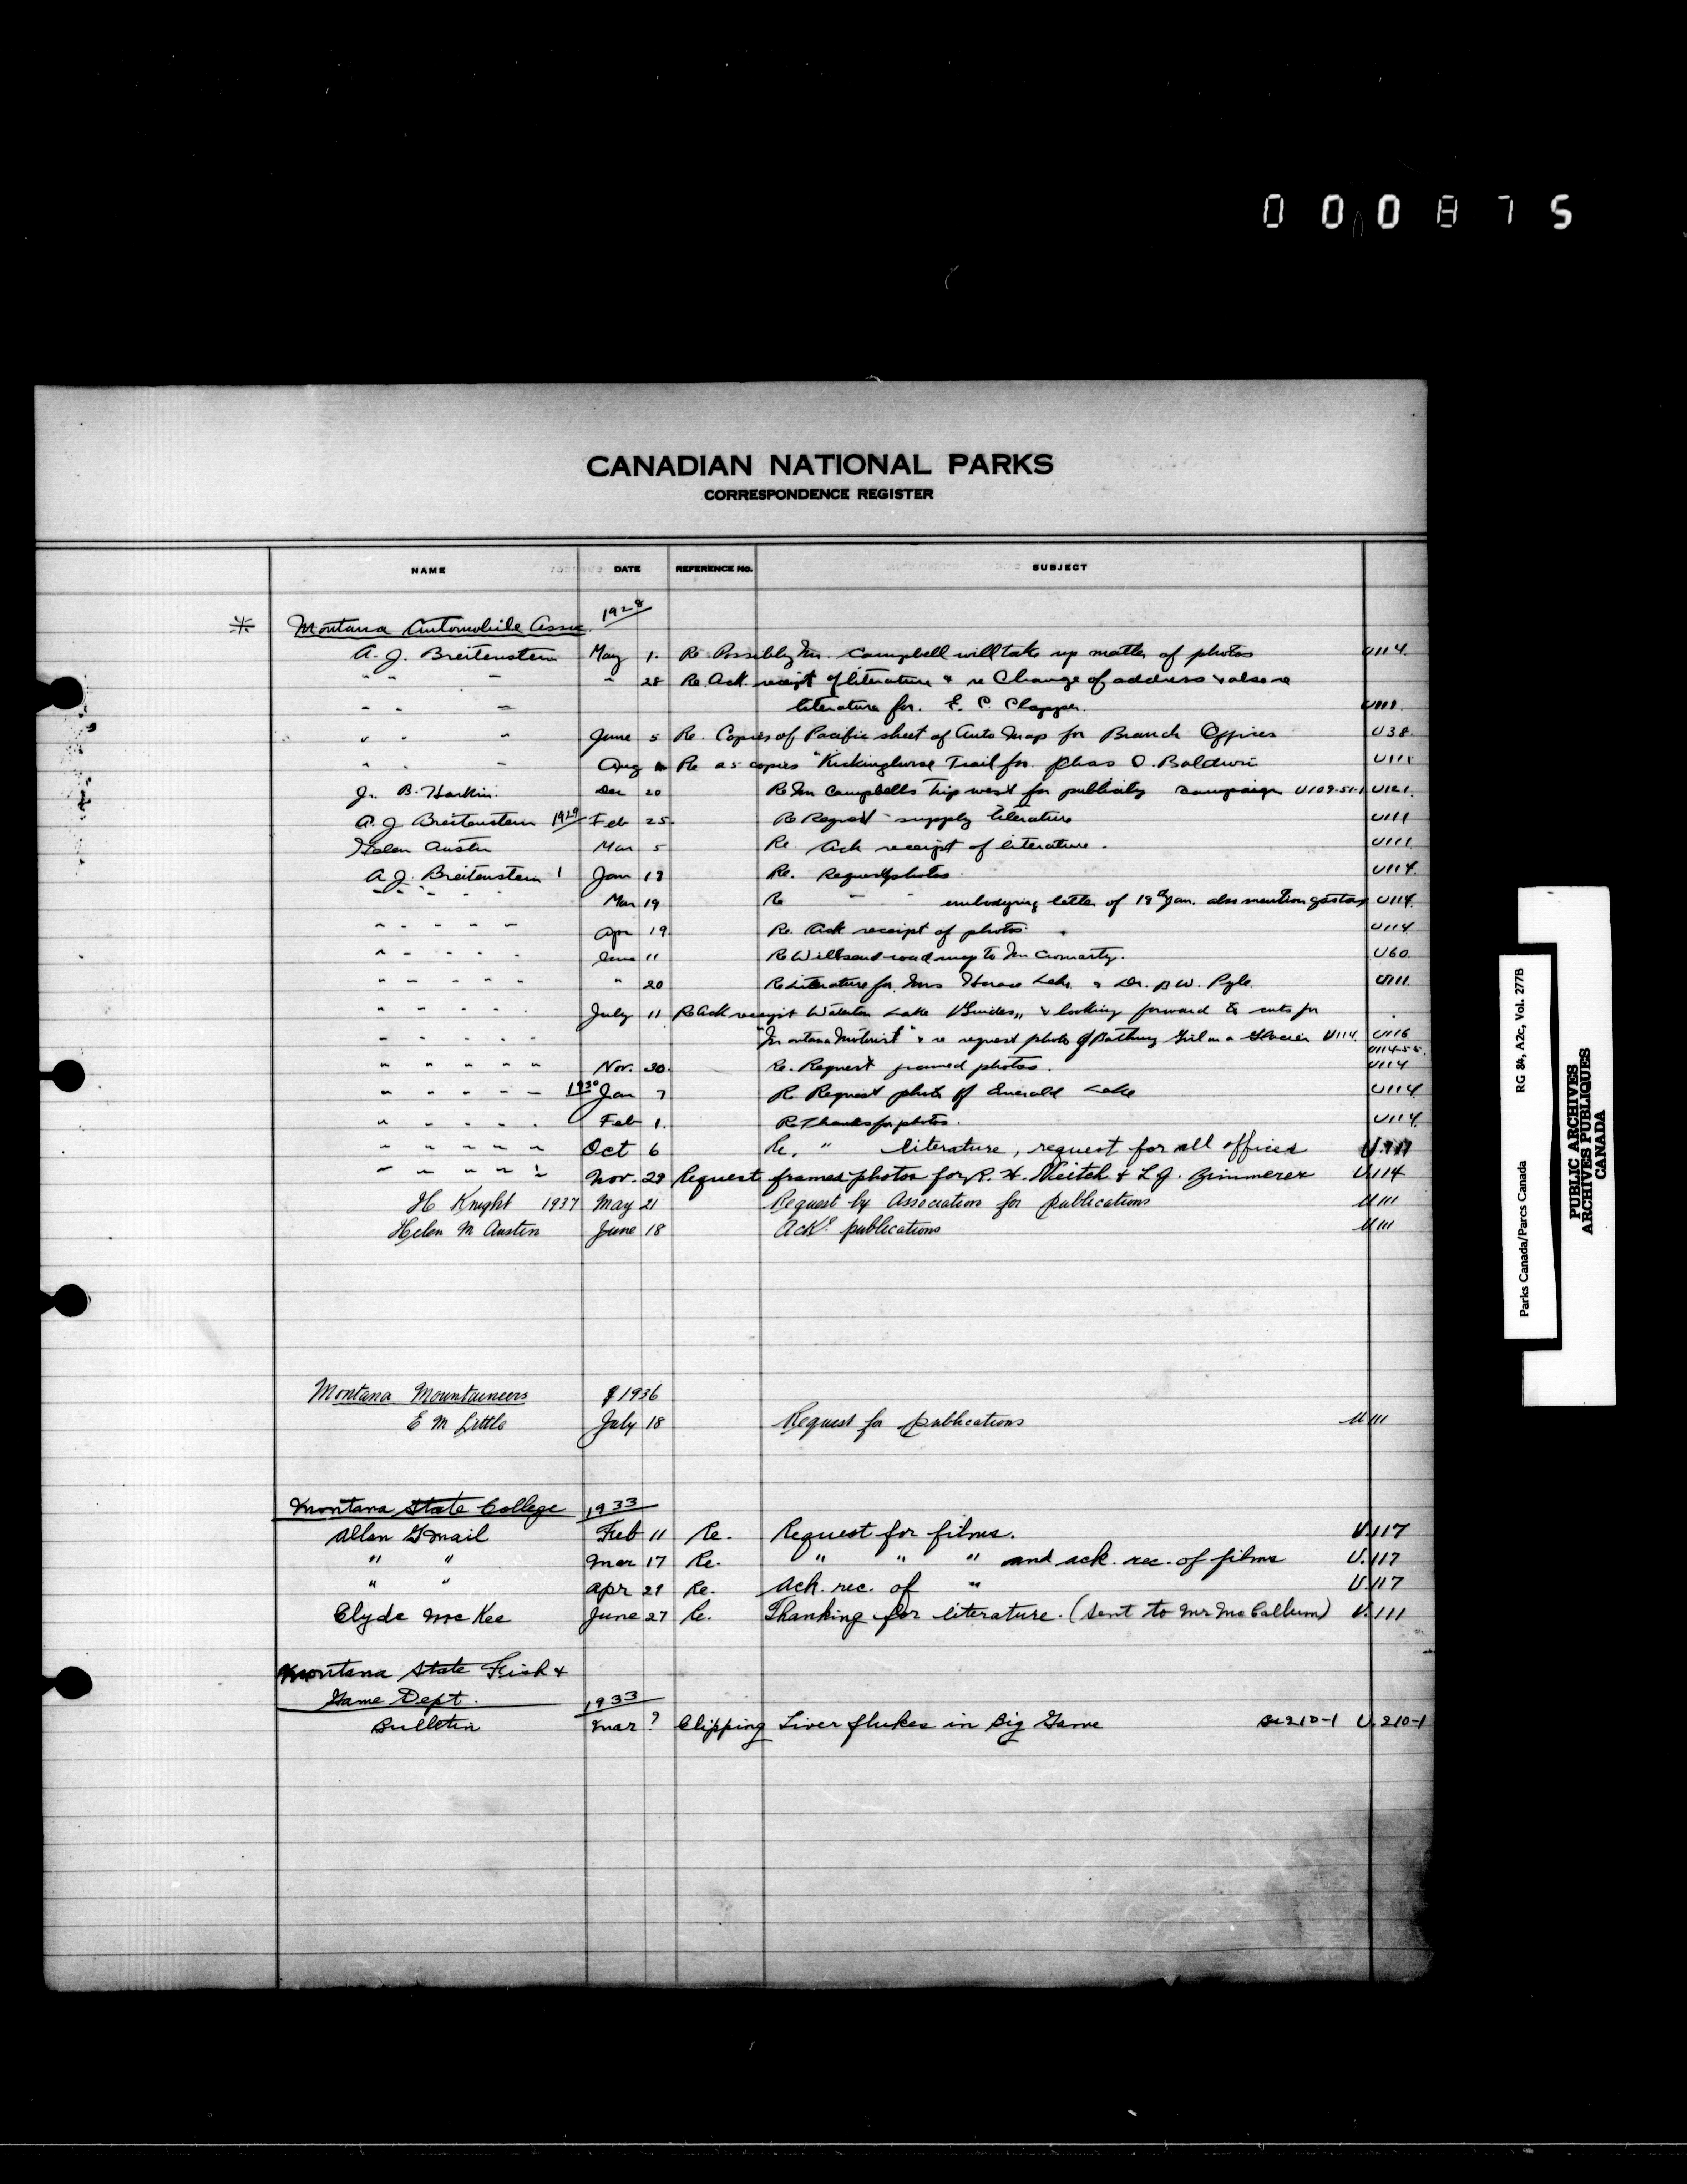 000875
CANADIAN NATIONAL PARKS
CORRESPONDENCE REGISTER
NAME DATE REFERENCE No. SUBJECT
Montana Automobile Assoc. 1928
A. J. Breitenstein May 1. Re Possibly Mr. Campbell will take up matter of photos U114.
" " " " 28 Re. Ack. receipt of literature & re Change of address & also re
" " " literature for. E. C. Clapper. U111.
" " " June 5 Re. Copies of Pacific sheet of Auto Map for Branch Offices U38.
" " " Aug Re 25 copies "Kickinghorse Trail for Chas O. Baldwin U111
J. B. Harkin. Dec 20 Re Mr Campbells trip west for publicity campaign U109-51-1 U121.
A. J. Breitenstein 1929 Feb 25. Re Request supply literature U111
Helen Austin Mar 5 Re Ack receipt of literature. U111.
A. J. Breitenstein Jan 19 Re. Request photos U114.
" " " " Mar 19 Re " " embodying letter of 19th Jan. also mention U114.
" " " " " Apr 19. Re. Ack receipt of photos U114
" " " " June 11 Re Will send road map to Mr Cromarty. U60.
" " " " " " 20 Re Literature for Mrs Horace & Dr. B W. Pyle. U111.
" " " " July 11 Re Ack receipt Waterton Lake Guides,, & looking forward to cuts for
" " " " "Montana Motorist" & re request photo of Bathing Girl on a Glacier U114. U116
U114-55.
" " " " " Nov. 30. Re. Request framed photos. U114
" " " " " 1930 Jan 7 Re Request photo of Emerald Lake U114.
" " " " " Feb 1. Re Thanks for photos. U114.
" " " " " Oct 6 Re. " literature, request for all offices U.111
" " " " " Nov. 29 Request framed photos for R. H. Veitch & L. J. Zimmerer U.114
H Knight 1937 May 21 Request by Association for publications U 111
Helen M Austin June 18 Ackg publications U 111
Montana Mountaineers 1936
E M Little July 18 Request for publications U 111
Montana State College 1933
Allen G Mail Feb 11 Re. Request for films. U.117
" " Mar 17 Re. " " " and ack. rec. of films U.117
" " Apr 29 Re. Ack. rec. of " U.117
Clyde McKee June 27 Re. Thanking for literature. (sent to Mr McCallum) U.111
Montana State Fish &
Game Dept. 1933
Bulletin Mar ? Clipping Liver flukes in Big Game Bu210-1 U.210-1
Parks Canada/Parcs Canada RG 84, A2c, Vol. 277B
PUBLIC ARCHIVES
ARCHIVES PUBLIQUES
CANADA